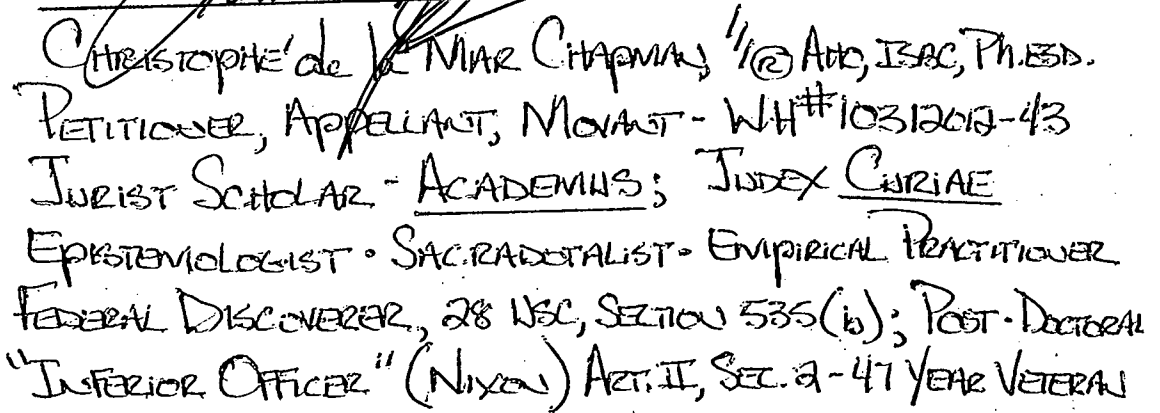 Christophé de la Mar Chapman, 1/@ AHC, ISBC, Ph.ESD.
Petitioner, Appellant, Movant - WH#10312012-43
Jurist Scholar - Academus; Judex Curiae
Epistemologist • Sacradotalist • Empirical Practitioner
Federal Discoverer, 28 USC, Section 535(b); Post-Doctoral
"Inferior Officer" (Nixon) Art. II, Sec. 2 - 47 Year Veteran